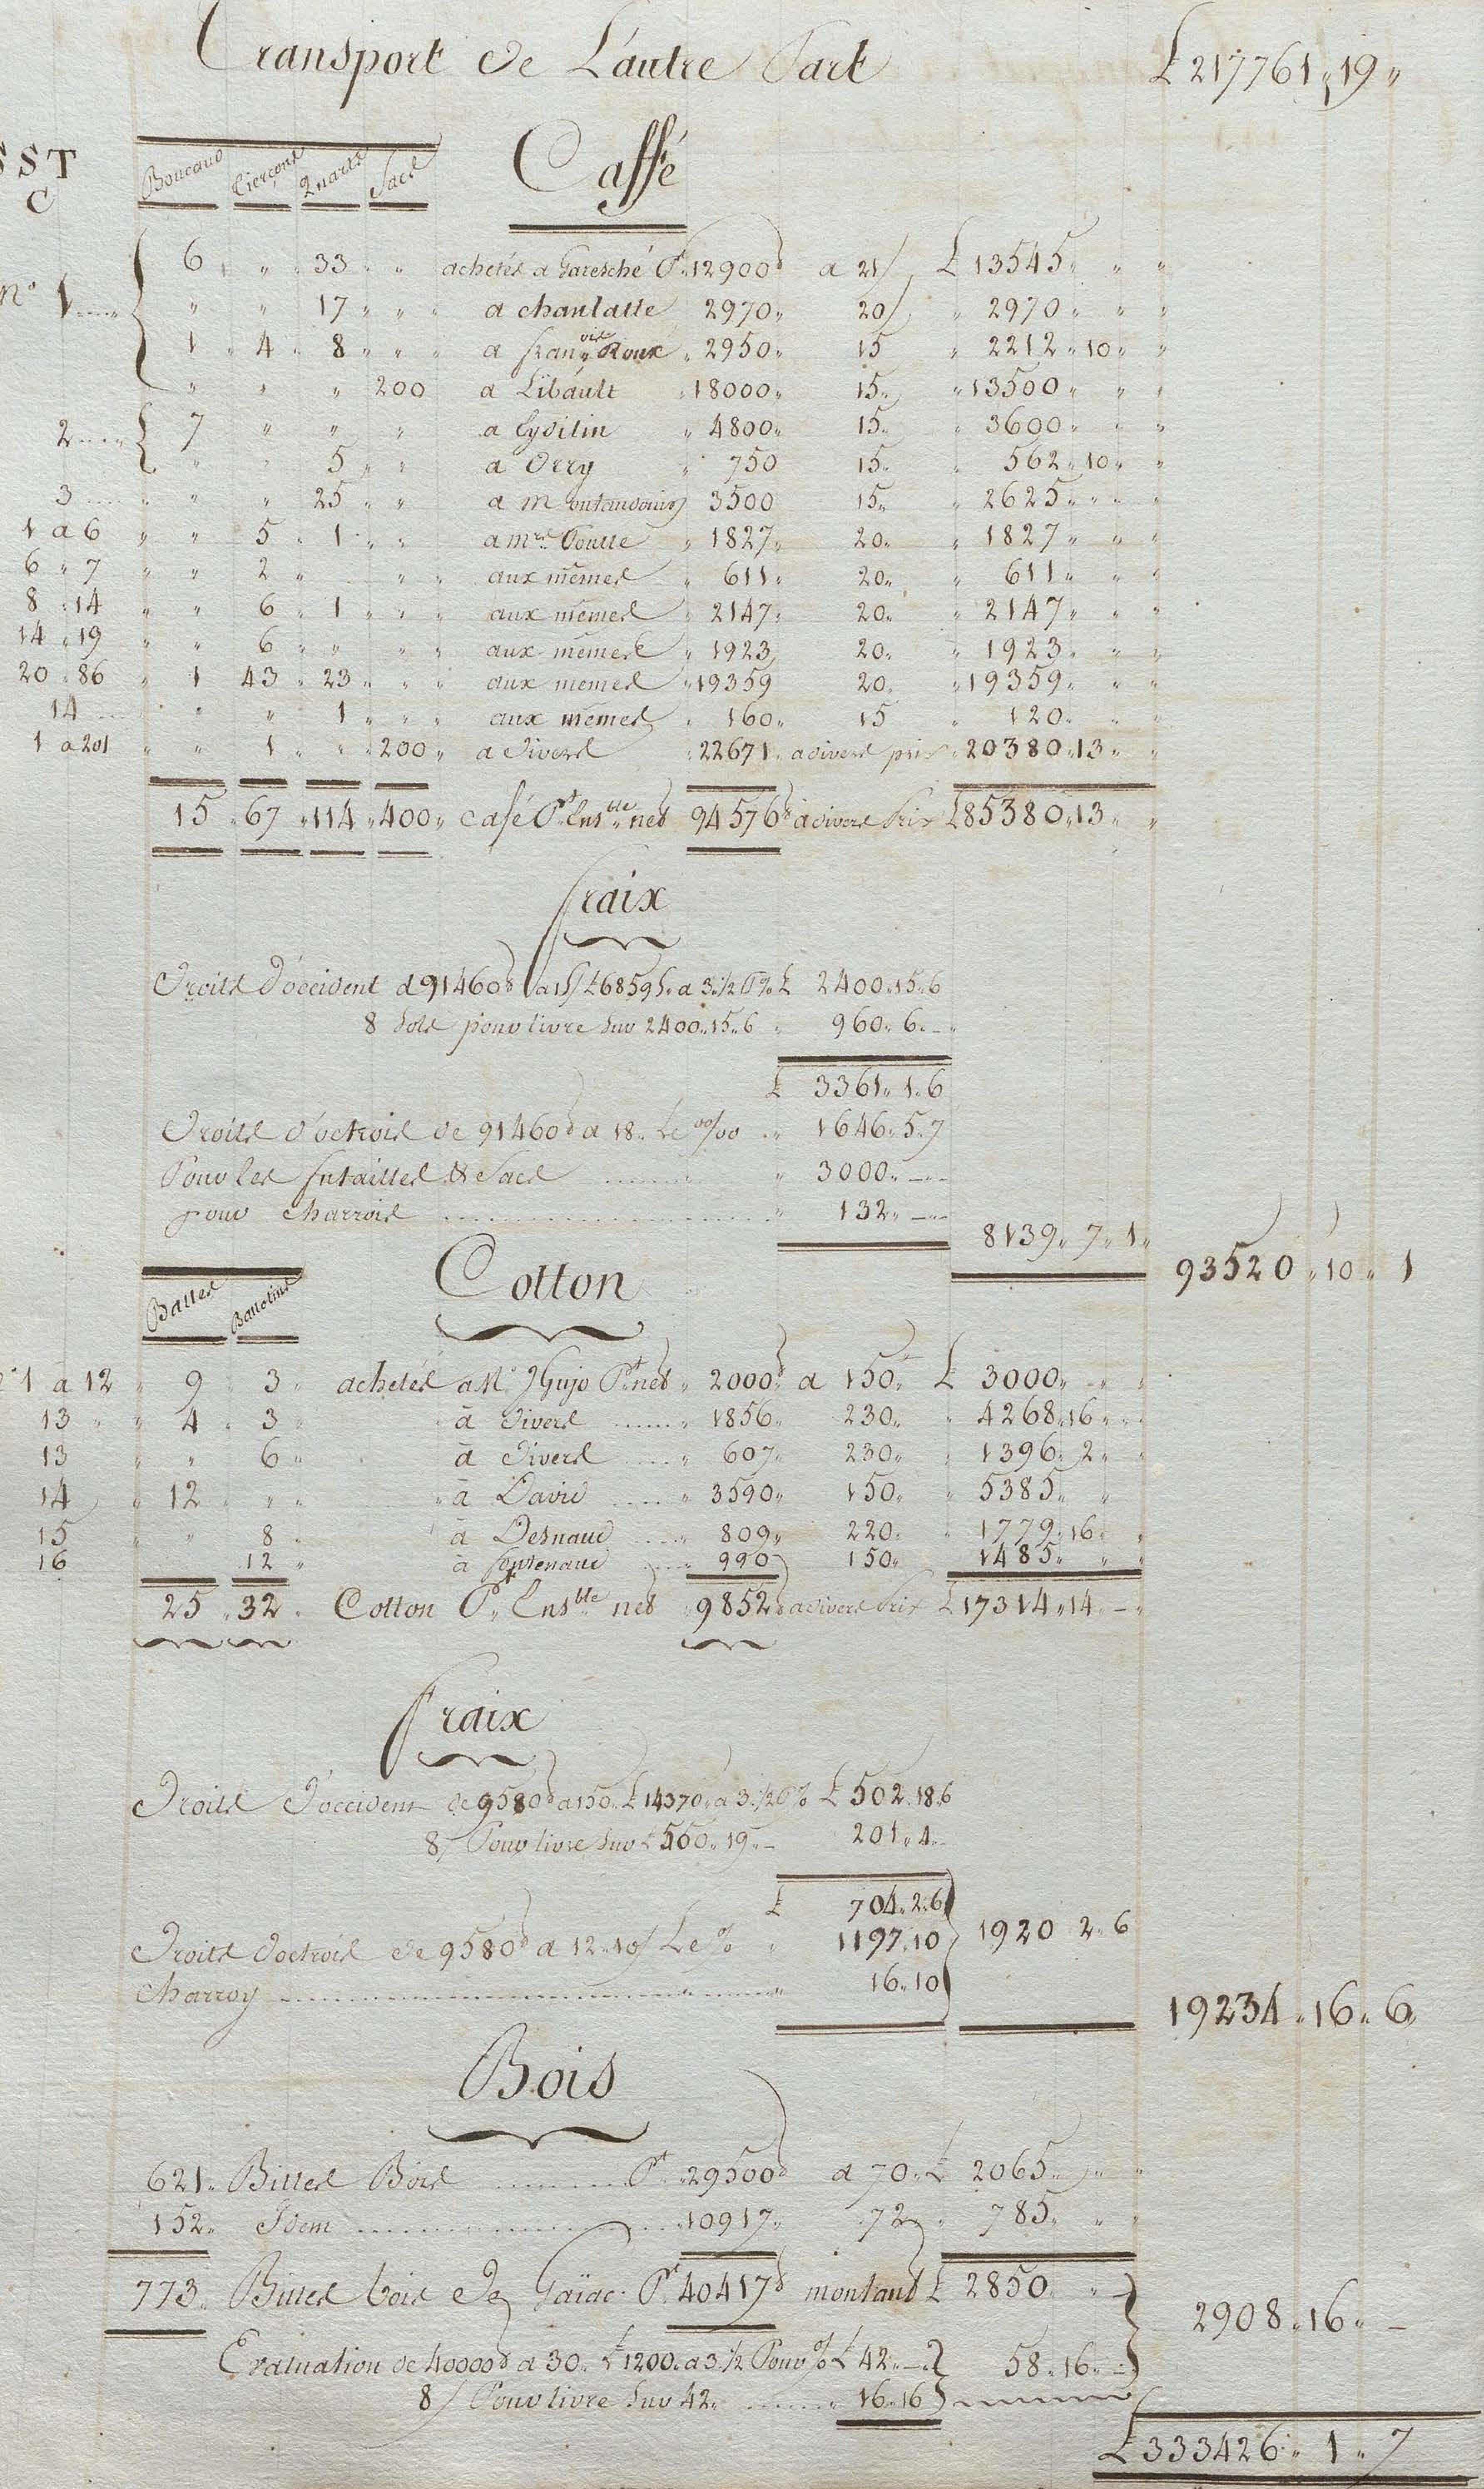 Transport de L'autre Part £ 217761 " 19 "
SST
C
Boucaus Tierçons Quarts Sacs
Caffé
n° 1 6 " " 33 " " achetés a Garesché Pt 12900 d a 21/ £ 13545 " " "
" " 17 " " a chanlatte 2970 " 20/ " 2970 " " "
1 " 4 " 8 " " a franois Roux " 2950 " 15 " 2212 " 10 " "
" " " 200 a Libault " 18000 " 15 " " 13500 " " "
2 7 " " " a Lydilin " 4800 " 15 " " 3600 " " "
" " 5 " " a Orry " 750 15 " " 562 " 10 " "
3 " " 25 " " a montaudouin 3500 15 " " 2625 " " "
1 a 6 " " 5 " 1 " " a mrs Poutte " 1827 " 20 " " 1827 " " "
6 " 7 " " 2 " " " aux mêmes " 611 " 20 " " 611 " " "
8 " 14 " " 6 " 1 " " aux mêmes " 2147 " 20 " " 2147 " " "
14 " 19 " " 6 " " " " aux mêmes " 1923 20 " " 1923 " " "
20 " 86 " 1 43 " 23 " " aux memes " 19359 20 " " 19359 " " "
14 " " 1 " " aux mêmes " 160 " 15 " 120 " " "
1 a 201 " " 1 " " 200 " a divers " 22671 " a divers prix " 20380 " 13 " "
15 " 67 " 114 " 400 " café Pt Ensble net 94576 d a divers Prix £ 85380 " 13 " "
fraix
Droits d'occident d 91460 d a 15/ £ 6859 5 " a 3 " ½ P% £ 2400 " 15 " 6
8 sols pour livre sur 2400 " 15 " 6 " 960 " 6 " - "
£ 3361 " 1 " 6
Droits d'octrois de 91460 d a 18 " Le 00/00 " 1646 " 5 " 7
Pour les futailles & Sacs " 3000 " -- "
pour charrois " 132 " -- "
8139 " 7 " 1 "
93520 " 10 " 1
Balles Ballotins
Cotton
n° 1 a 12 " 9 " 3 " achetés a Mr Gujo Pt net " 2000 d a 150 " £ 3000 " " "
13 " " 4 " 3 " à divers " 1856 " 230 " " 4268 " 16 " "
13 " " 6 " à divers " 607 " 230 " " 1396 " 2 " "
14 " 12 " " " à David " 3590 " 150 " " 5385 " "
15 " " 8 " à Desnaud " 809 " 220 " " 1779 " 16 "
16 12 " à fontenaud " 990 150 " 1485 " " "
25 " 32 " Cotton Pt Ensble net " 9852 d a divers Prix £ 17314 " 14 " - "
fraix
Droits d'occident de 9580 d a 150 " £ 14370 " a 3 " ½ P% £ 502 " 18 " 6
8/ Pour livre sur £ 500 " 19 " - 201 " 4 " -
£ 704 " 2 " 6
Droits d'octrois de 9580 d a 12 " 10/ Le % " 1197 " 10 1920 2 " 6
charroy " 16 " 10
19234 " 16 " 6 "
Bois
621 " Billes Bois Pt " 29500 d a 70 " £ 2065 " " "
152 " Idem " 10917 " 72 " 785 " " "
773 " Billes bois de Gaïac Pt 40417 d montant £ 2850 " -
2908 " 16 " -
Evaluation de 40000 d a 30 " £ 1200 " a 3 " ½ Pour % £ 42 " - " 58 " 16 " -
8/ Pour livre sur 42 " " 16 " 16
£ 333426 " 1 " 7